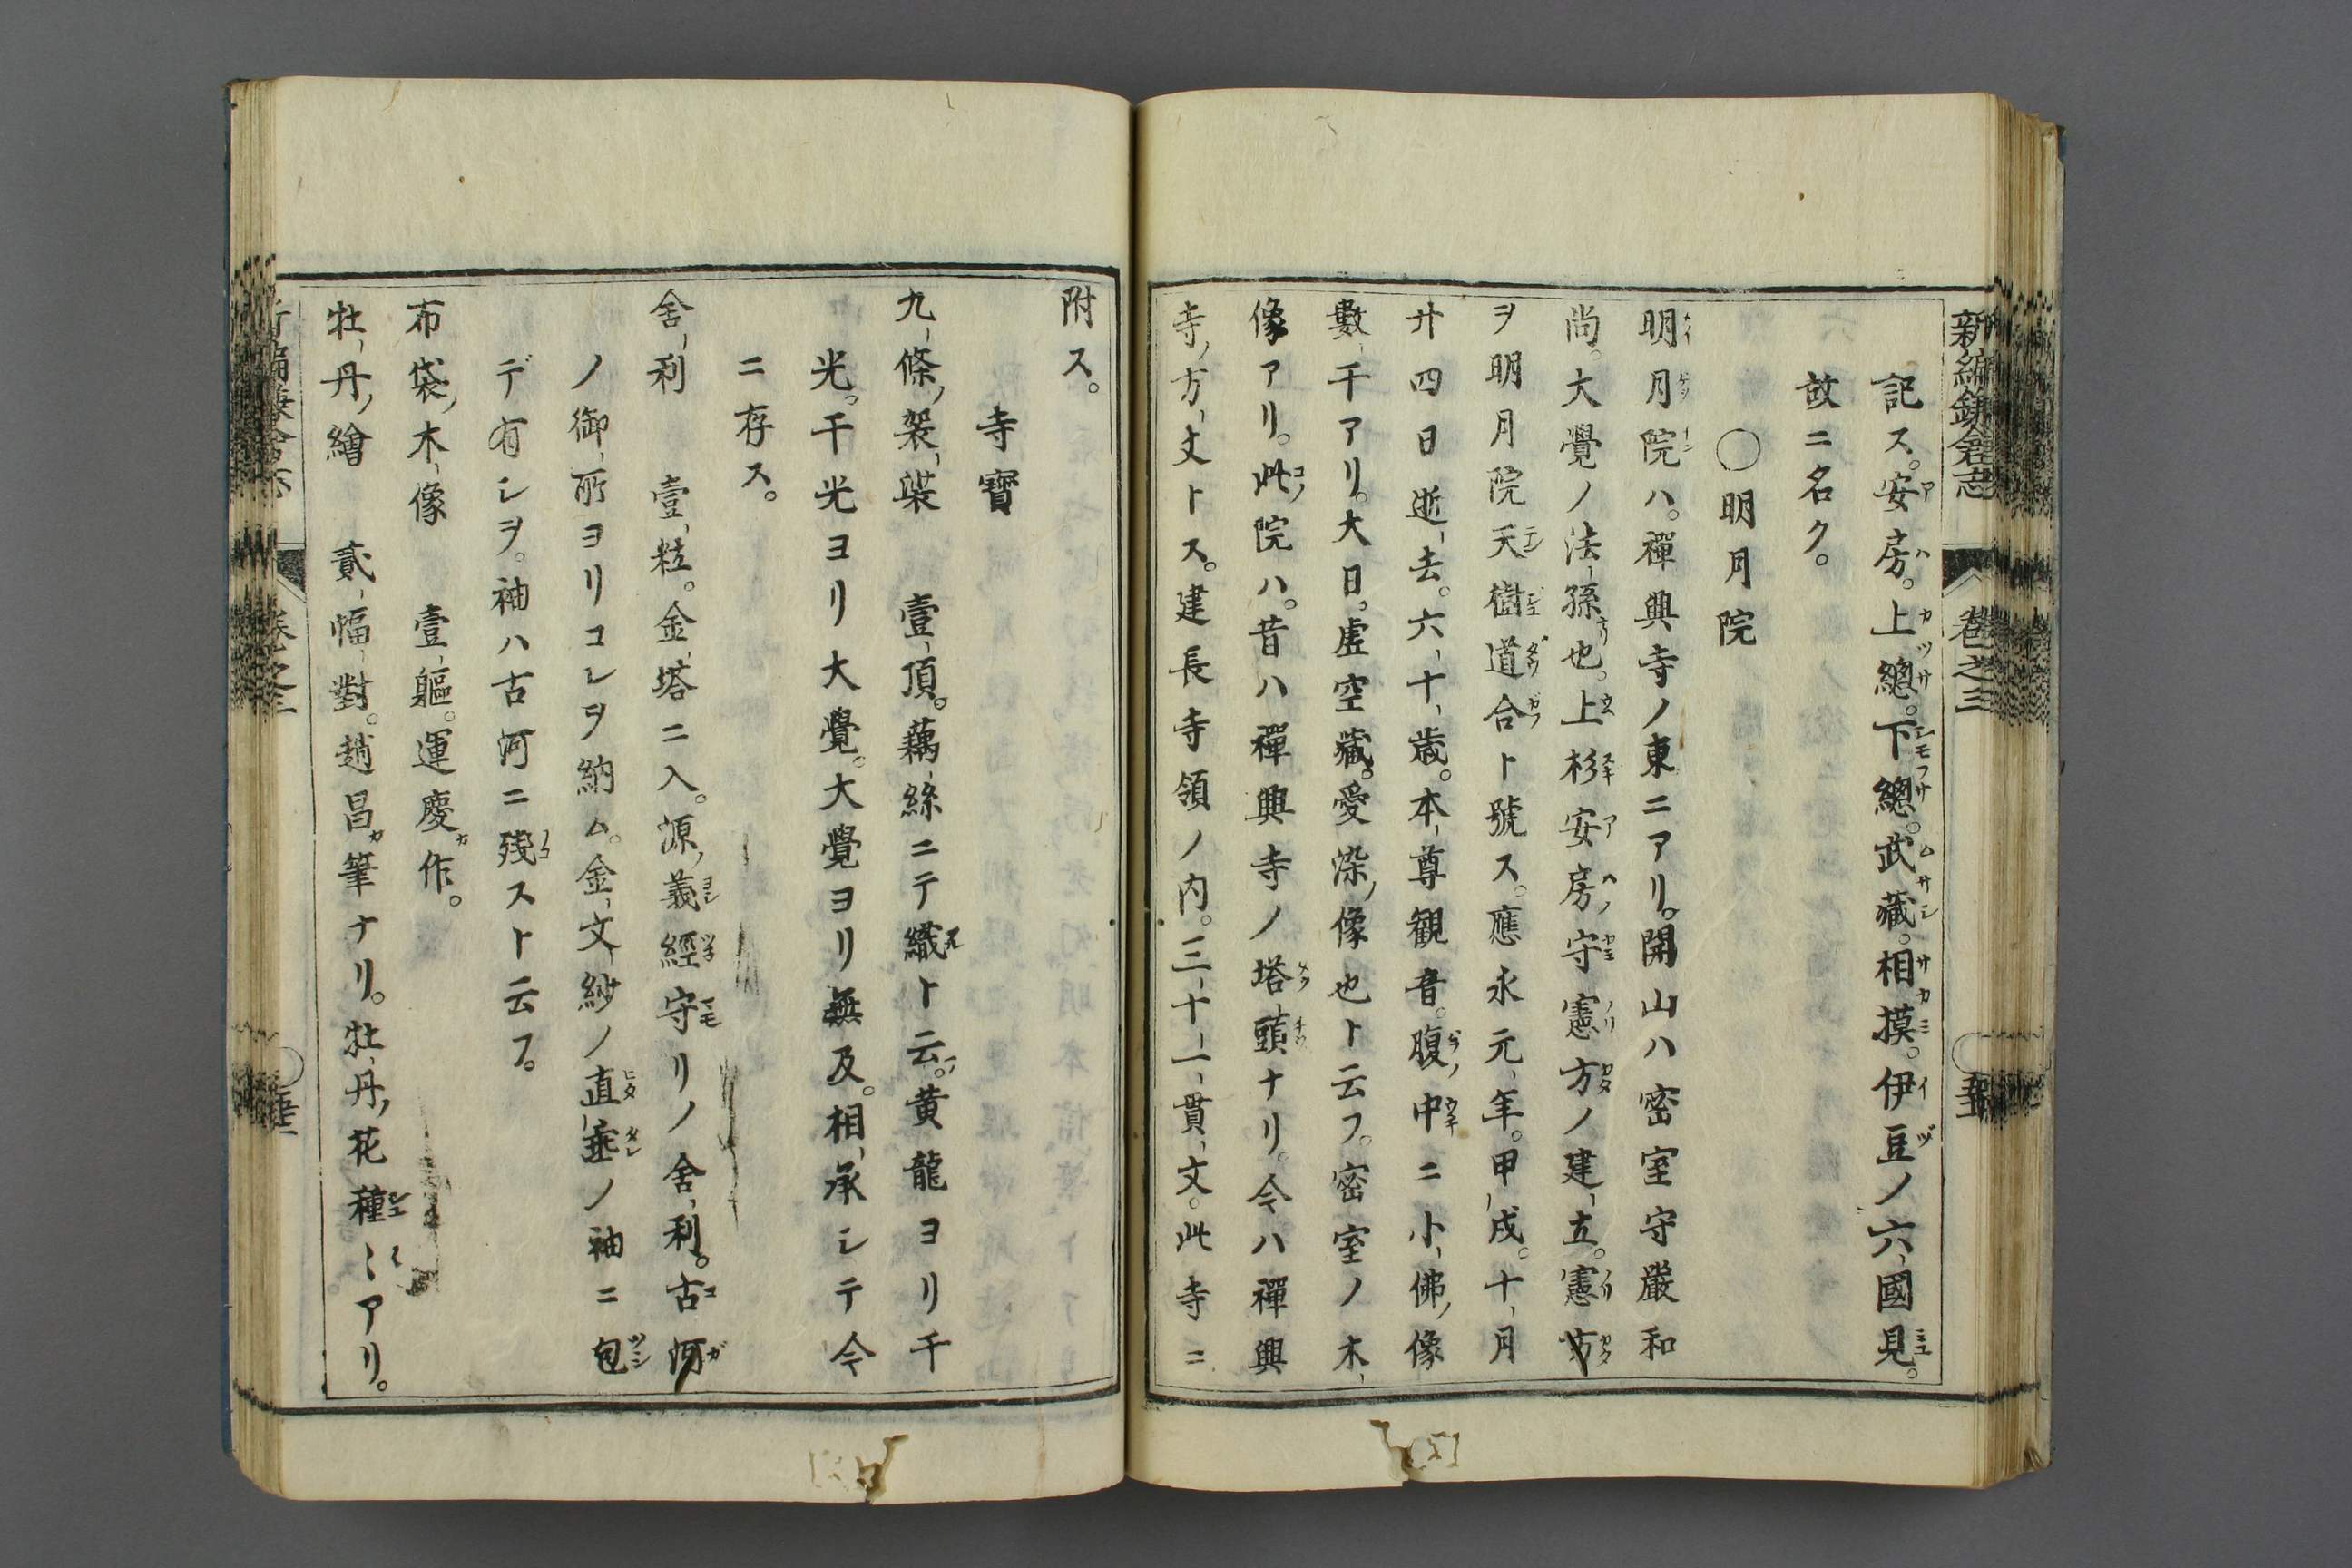 新編鎌倉志 卷之三
記ス。安房。上總。下總。武藏。相摸。伊豆ノ六國見。
故ニ名ク。
○明月院
明月院ハ。禪興寺ノ東ニアリ。開山ハ密室守嚴和
尚。大覺ノ法孫也。上杉安房守憲方ノ建立。憲方
ヲ明月院天樹道合ト號ス。應永元年。甲戌。十月
廿四日逝去。六十歳。本尊観音。腹中ニ小佛像
數千アリ。大日。虚空藏。愛染ノ像也ト云フ。密室ノ木
像アリ。此院ハ。昔ハ禪興寺ノ塔頭ナリ。今ハ禪興
寺ノ方丈トス。建長寺領ノ内。三十一貫文。此寺ニ
附ス。
寺寶
九條ノ袈裟 壹頂。藕絲ニテ織ト云。黄龍ヨリ千
光。千光ヨリ大覺。大覺ヨリ無及。相承シテ今
ニ存ス。
舍利 壹粒。金塔ニ入。源ノ義經守リノ舍利。古河
ノ御所ヨリコレヲ納ム。金文紗ノ直垂ノ袖ニ包
デ有シヲ。袖ハ古河ニ残スト云フ。
布袋ノ木像 壹軀。運慶作。
牡丹ノ繪 貳幅對。趙昌カ筆ナリ。牡丹ノ花種〻アリ。